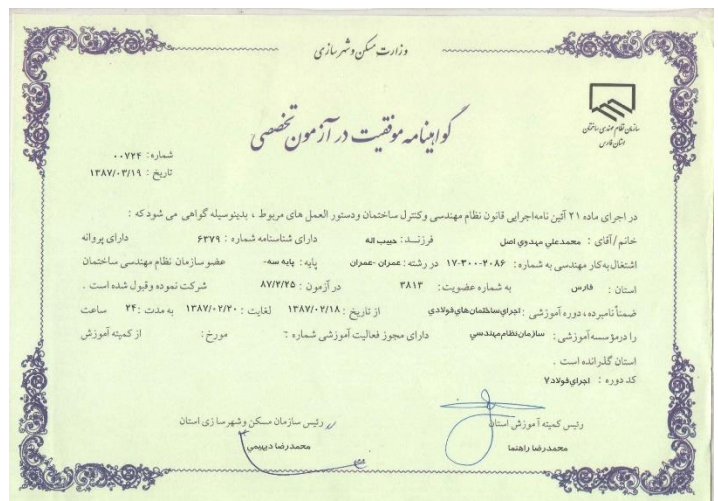 وزارت مسکن و شهرسازی
سازمان نظام مهندسی ساختمان
استان فارس
گواهینامه موفقیت در آزمون تخصصی
شماره: ۰۰۷۲۴
تاریخ : ۱۳۸۷/۰۳/۱۹
در اجرای ماده ۲۱ آئین نامه‌اجرایی قانون نظام مهندسی وکنترل ساختمان ودستور العمل های مربوط ، بدینوسیله گواهی می شود که :
خانم / آقای : محمدعلي مهدوي اصل فرزنـــد: حبیب اله دارای شناسنامه شماره : ۶۳۷۹ دارای پروانه
اشتغال به کار مهندسی به شماره : ۱۷-۳۰۰-۲۰۸۶ در رشته : عمران -عمران پایه : پایه سه- عضو سازمان نظام مهندسی ساختمان
استان : فارس به شماره عضویت : ۳۸۱۳ در آزمون : ۸۷/۲/۲۵ شرکت نموده وقبول شده است .
ضمناً نامبرده ، دوره آموزشی : اجراي‌ساختمان‌هاي‌فولادي از تاریخ : ۱۳۸۷/۰۲/۱۸ لغایت : ۱۳۸۷/۰۲/۲۰ به مدت : ۲۴ ساعت
را درمؤسسه آموزشی : سازمان‌نظام‌مهندسي دارای مجوز فعالیت آموزشی شماره : مورخ : از کمیته آموزش
استان گذرانده است .
کد دوره : اجراي‌فولاد۷
رئیس کمیته آموزش استان
محمدرضا راهنما
رئیس سازمان مسکن وشهرسازی استان
محمدرضا دبییمي